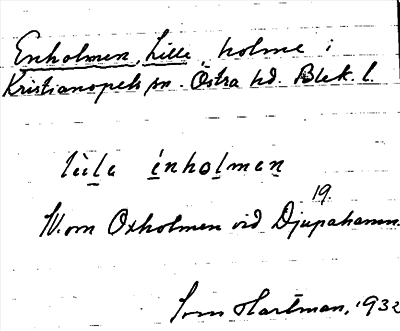 Enholmen, Lille, holme i
Kristianopels sn. Östra hd. Blek. l.
lìla ènholman
19.
V. om Oxholmen vid Djupahamn.
Hartman, 1932